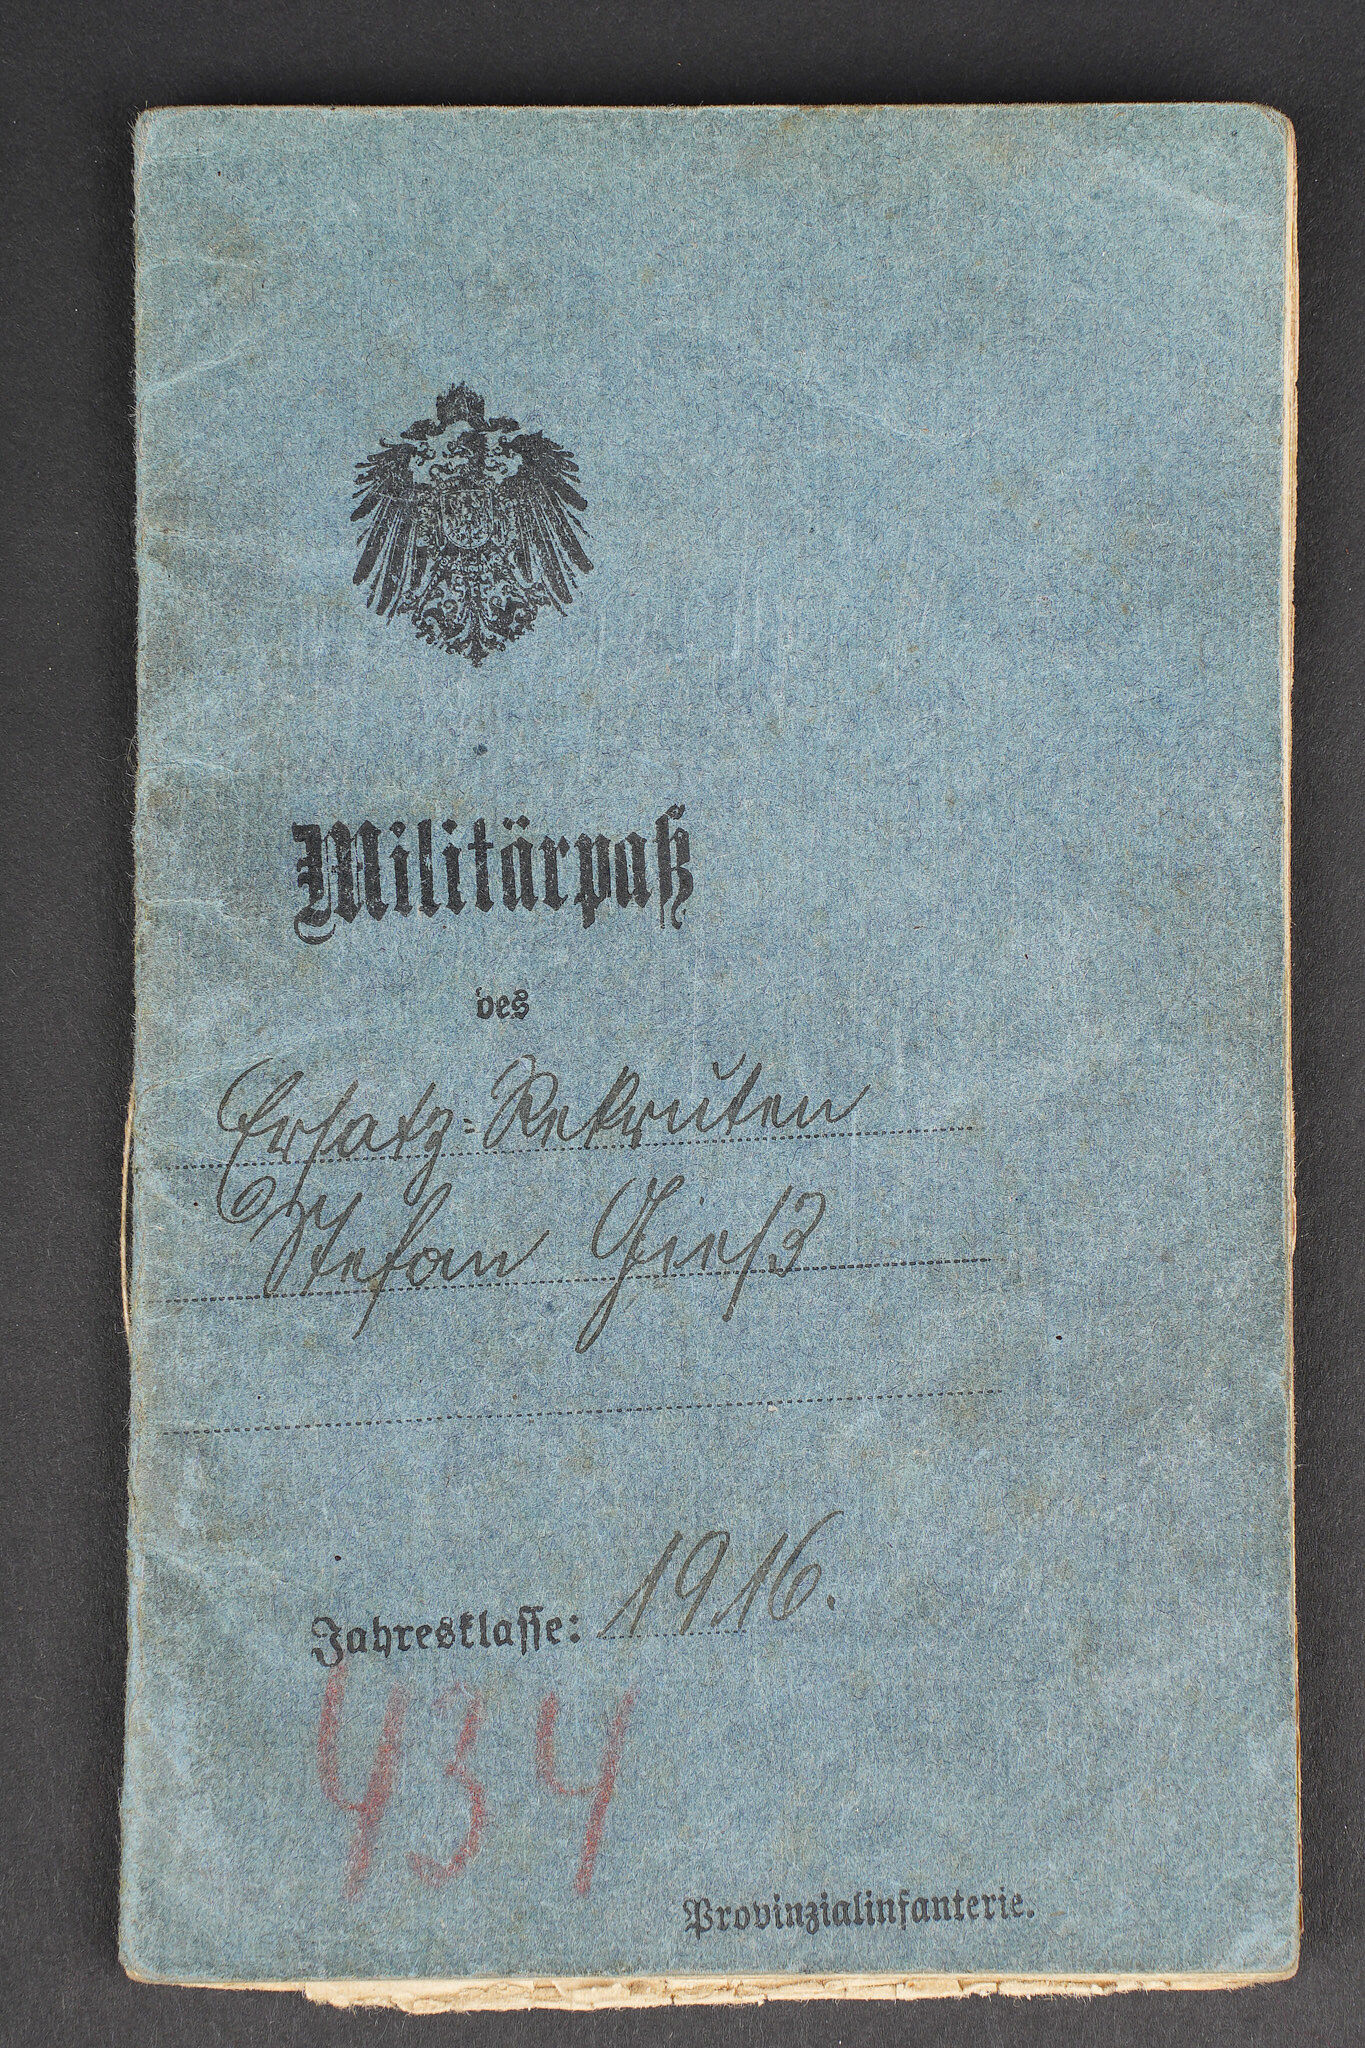 Militärpaß
des
Ersatz-Rekruten
Stefan Gieß
Jahresklasse: 1916.
434
Provinzialinfanterie.